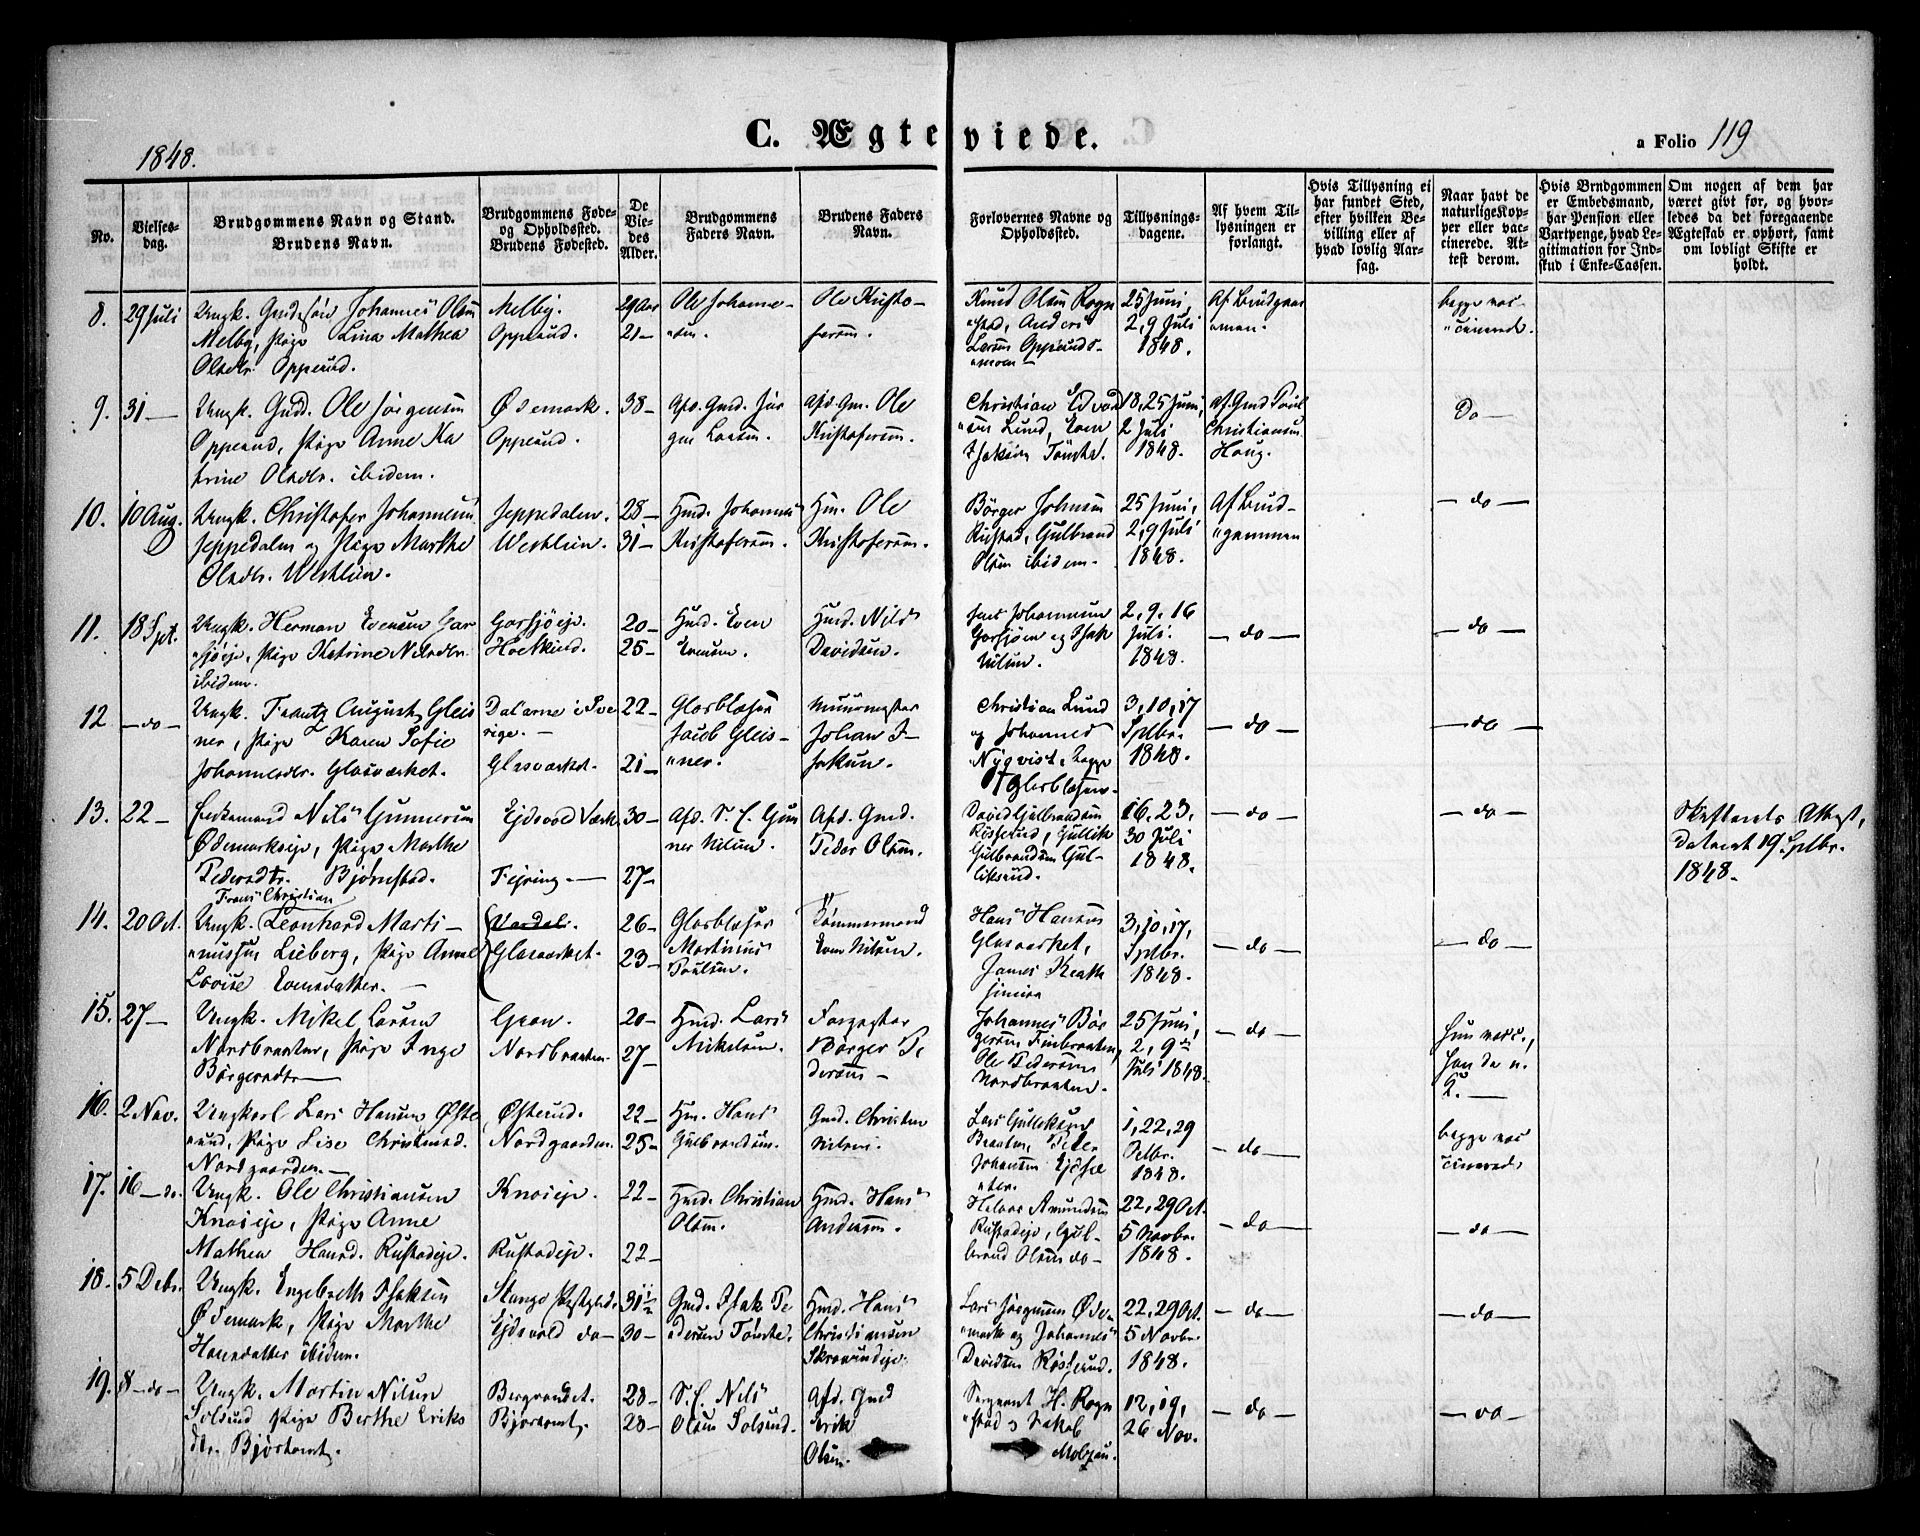 C. Ægteviede.
1848.
a Folio 119
No.
Vielses-
dag.
Brudgommens Navn og Stand.
Brudens Navn.
Brudgommens Føde-
og Opholdssted.
Brudens Fødested.
De
Vie-
des
Alder.
Brudgommens
Faders Navn.
Brudens Faders
Navn.
Forlovernes Navne og
Opholdssted.
Tillysnings-
dagene.
Af hvem Til-
lysningen er
forlangt.
Hvis Tillysning ei
har fundet Sted,
efter hvilken Be-
villing eller af
hvad lovlig Aar-
sag.
Naar havt de
naturlige Kop-
per eller vac-
cinerede. At-
test derom.
Hvis Brudgommen
er Embedsmand,
har Pension eller
Vartpenge, hvad Le-
gitimation for Ind-
skud i Enke-Cassen.
Om nogen af dem har
været givt før, og hvor-
ledes da det foregaaende
Ægteskab er ophørt, samt
om lovligt Skifte er
holdt.
8. 29 Juli
Ungk. Johannes Olsen
Melby, Pige Lina Mathea
Olsdtr. Oppeiud.
Melby.
Oppeiud.
29 Aar
21 —
Ole Johanne-
"sen.
Ole Kristo-
fersen.
Knud Olsen Rogn
"stad, Anders
Larsen
25 Juni,
2, 9 Juli
1848.
Af Brudgom
"men.
begge vac-
"cinered.
9. 31 —
Ungk. Ole Jørgensen
Oppeiud, Pige Anne Ka
trine Olsdtr. ibidem.
Ødemark.
Oppeiud.
38 —
Afd. Gmd. Jør
gen Larsen.
Afd. Gm. Ole
Kristofersen.
Christian Edvard
"sen Lund, Even
Isaksen Tömte.
18, 25 Juni,
2 Juli
1848.
Af Gmd Poul
Christiansen
Haug.
Do —
10. 10 Aug.
Ungk. Christofer Johannesen
Jeppedalen og Pige Marthe
Olsdtr. Westlien.
Jeppedalen.
Westlien.
28 —
31 —
Hmd. Johannes
Kristofersen.
Hm. Ole
Kristofersen.
Börger Johnsen
Rustad, Gulbrand
Olsen ibidem.
25 Juni,
2, 9 Juli
1848.
Af Brud-
"gommen
— do —
11. 18 Spt.
Ungk. Herman Evensen Gar
"sjøeje, Pige Katrine Nilsdtr.
ibidem.
Garsjøeje.
20 —
25 —
Hmd. Even
Evensen.
Hmd. Nils
Davidsen.
Johannesen
Garsjøen og Isak
Nilsen.
2, 9, 16
Juli.
1848.
— do —
— do —
12 — do —
Ungk. Frantz August Gleis
ner, Pige Karen Sofie
Johannesdtr. Glasværket.
Dalarne i Sve
rige. —
Glasværket.
22 —
21 —
Glasblæser
Jacob Gleis-
"ner.
Muurmester
Johan
Christian Lund
og Johannes
Nyqvist, begge
Glasblæsere.
3, 10, 17
Sptbr.
1848.
— do —
— do —
13. 22 —
Nils Gunnersen
Ødemarkseje, Pige Marthe
Pedersdtr. Björnstad.
Ejdsvold Værk.
Fejring —
30 —
27 —
Afd. S. E. Gun
ner Nilsen.
Afd. Gmd.
Peder Olsen.
David Gulbrandsen
Røsterud, Gullik
Gulbrandsen Gul-
liksrud.
16, 23,
30 Juli
1848.
— do —
— do —
Skifterets Attest,
dateret 19 Sptbr.
1848.
14. 20 Oct.
Frans Christian
Ungk. Leonhard Marti-
"niussen Lieberg, Pige Anne
Lovise Evensdatter. —
Vardal.
Glasværket.
26 —
23 —
Glasblæser
Martinius
Poulsen.
Tömmermand
Even Nilsen.
Hans Hansen
Glasværket,
James Keath
3, 10, 17,
Sptbr.
1848.
— do —
— do
15. 27 —
Ungk. Mikel Larsen
Nordbraaten, Pige Inge
Börgersdtr —
Gran.
Nordbraaten.
20 —
27 —
Hmd. Lars
Mikelsen.
Börger Pe
dersen —
Johannes Bör
gersen Finbraaten,
Ole Pedersen
Nordbraaten.
25 Juni,
2, 9de
Juli 1848.
— do —
hun vacc.,
16. 2 Nov.
Ungkarl Lars Hansen Øste
"rud, Pige Lise Christensd.
Nordgaarden —
Østerud.
Nordgaarden.
22 —
25 —
Hm. Hans
Gulbrandsen.
Gmd. Christen
Nilsen.
Lars Gulliksrud
Braaten, Peder
Johansen
1, 22, 29
1848.
— do —
begge vac
"cinered.
17. 16 — do.
Ungk. Ole Christiansen
Knaieje, Pige Anne
Mathea Hansd. Rustadeje.
Knaieje.
Rustadeje.
22 —
22 —
Hmd. Christian
Olsen.
Hmd. Hans
Andersen.
Halvor Amundsen
Rustadeje, Gul-
brand Olsen do —
22, 29 Oct.
5 Novbr.
1848.
— do —
— do —
18. 5 Debr.
Ungk. Engebreth Isaksen
Ødemark, Pige Marthe
Hansdatter ibidem.
Stange Præstegjeld.
Ejdsvold do —
31 1/2
30 —
Gmd. Isak Pe
dersen Tömte.
Hmd. Hans
Christiansen
Lars Jørgensen Øde-
"mark og Johannes
Davidsen Røsterud.
22, 29 Oct.
5 Novbr.
1848.
— do —
— do —
19. 8 — do —
Ungk. Martin Nilsen
Solsrud Pige Berthe Eriks
dtr. Björtomt.
Bergrandet.
Björtomt.
28 —
23 —
S. E. Nils
Olsen Solsrud.
Afd. Gmd
Erik
Olsen.
Sergeant H. Rogn
"stad og Jakob
Molzau.
12, 19,
26 Nov.
— do —
— do —